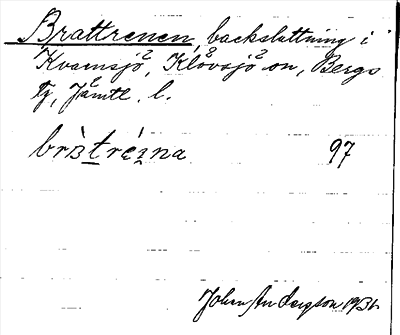 Brattrenen, backsluttning i
Kvarnsjö, Klövsjö sn, Bergs
tg, Jämtl. l.
bràtréna 97
Johan Andersson 1936